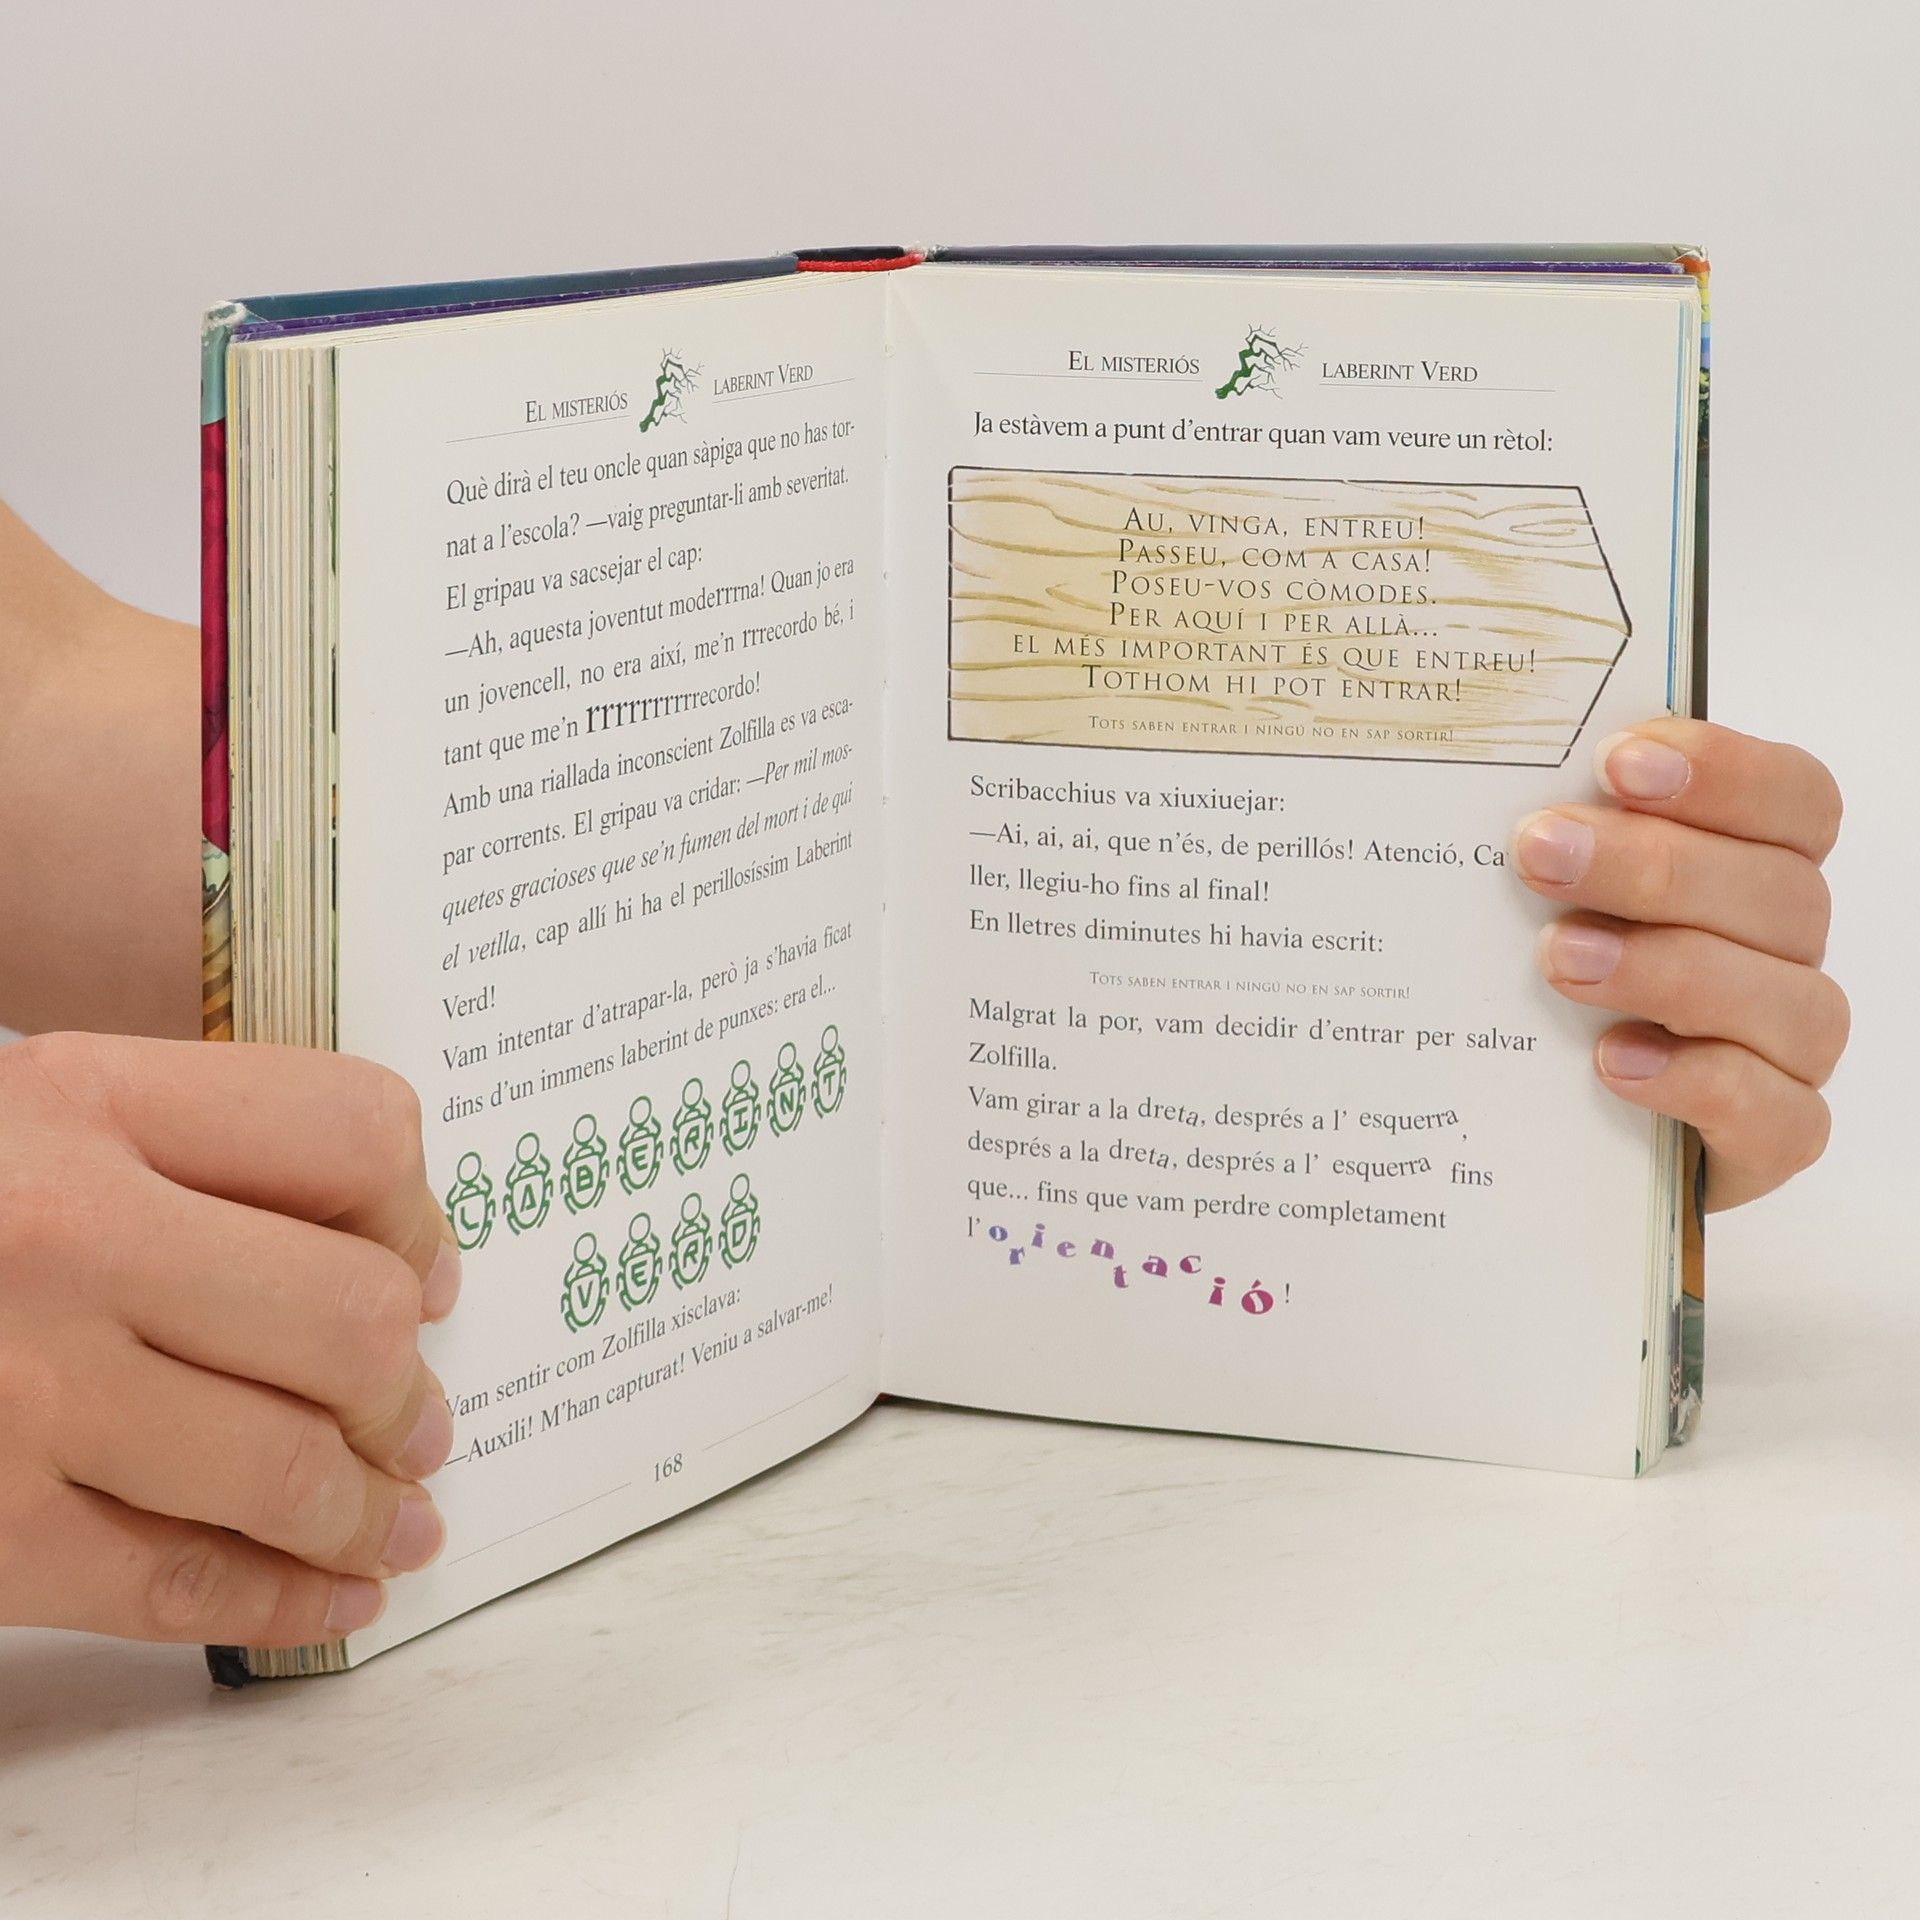 El misteriós laberint Verd
Què dirà el teu oncle quan sàpiga que no has tor-
nat a l'escola? —vaig preguntar-li amb severitat.
El gripau va sacsejar el cap:
—Ah, aquesta joventut moderrrna! Quan jo era
un jovencell, no era així, me'n rrrecordo bé, i
tant que me'n rrrrrrrrrrecordo!
Amb una riallada inconscient Zolfilla es va esca-
par corrents. El gripau va cridar: —Per mil mos-
quetes gracioses que se'n fumen del mort i de qui
el vetlla, cap allí hi ha el perillosíssim Laberint
Verd!
Vam intentar d'atrapar-la, però ja s'havia ficat
dins d'un immens laberint de punxes: era el...
LABERINT
VERD
Vam sentir com Zolfilla xisclava:
—Auxili! M'han capturat! Veniu a salvar-me!
168
El misteriós laberint Verd
Ja estàvem a punt d'entrar quan vam veure un rètol:
Au, vinga, entreu!
Passeu, com a casa!
Poseu-vos còmodes.
Per aquí i per allà...
el més important és que entreu!
Tothom hi pot entrar!
Tots saben entrar i ningú no en sap sortir!
Scribacchius va xiuxiuejar:
—Ai, ai, ai, que n'és, de perillós! Atenció,
ller, llegiu-ho fins al final!
En lletres diminutes hi havia escrit:
Tots saben entrar i ningú no en sap sortir!
Malgrat la por, vam decidir d'entrar per salvar
Zolfilla.
Vam girar a la dreta, després a l' esquerra,
després a la dreta, després a l' esquerra fins
que... fins que vam perdre completament
l'orientació!